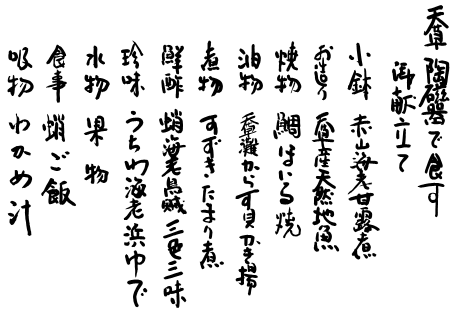 天草 陶磁器で食す
御献立て
小鉢 赤山海老甘露煮
お造り 天草産天然地魚
焼物 鯛はいる焼
油物 天草灘からす貝かき揚
煮物 すずきたまり煮
鮮酢 蛸海老烏賊三色三味
珍味 うちわ海老浜ゆで
水物 果物
食事 蛸ご飯
吸物 わかめ汁